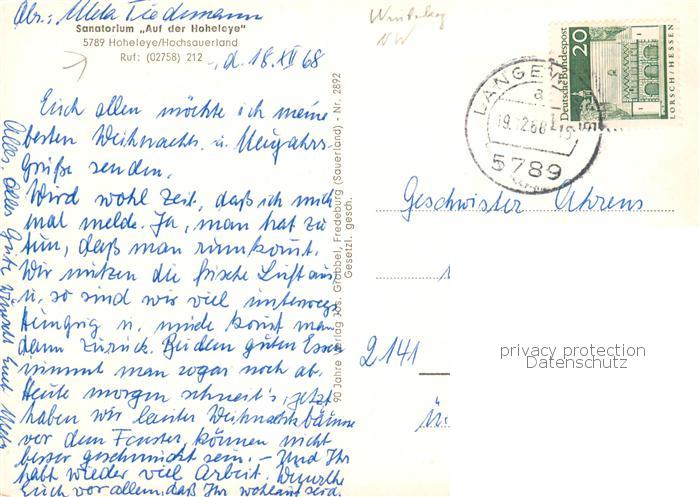 Abs.: Meta Tiedemann
Sanatorium „Auf der Hoheleye"
5789 Hoheleye/Hochsauerland
Ruf: (02758) 212
, d. 18. XII 68
Euch allen möchte ich meine
besten Weihnachts- u. Neujahrs-
grüße senden.
Wird wohl Zeit, daß ich mich
mal melde. Ja, man hat zu
tun, daß man rumkommt.
Wir nutzen die frische Luft aus
u. so sind wir viel unterwegs.
Hungrig u. müde kommt man
dann zurück. Bei dem guten Essen
nimmt man sogar noch ab.
Heute morgen schneit's, jetzt
haben wir lauter Weihnachtsbäume
vor dem Fenster, können nicht
besser geschmückt sein. – Und Ihr
habt wieder viel Arbeit. Wünsche
Euch vor allem, daß Ihr wohlauf seid.
Alles, alles Gute wünscht Euch Meta
90 Jahre Verlag Jos. Grobbel, Fredeburg (Sauerland) - Nr. 2892
Gesetzl. gesch.
Winterberg
NW
Deutsche Bundespost
20
LORSCH/HESSEN
LANGEW
a
19.12.68
5789
Geschwister Ahrens
2141
privacy protection
Datenschutz